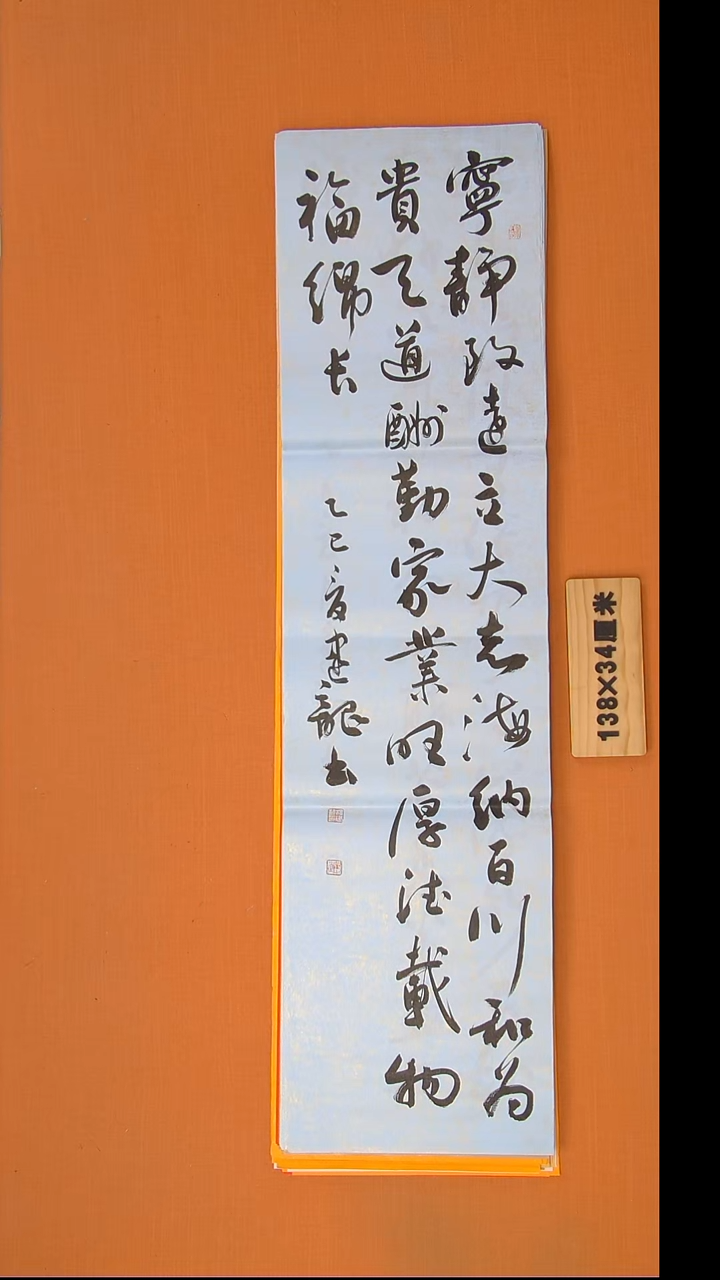 寧靜致遠立大志海納百川和为
貴天道酬勤家業旺厚德載物
福綿长
乙巳夏建龍书
138×34厘米